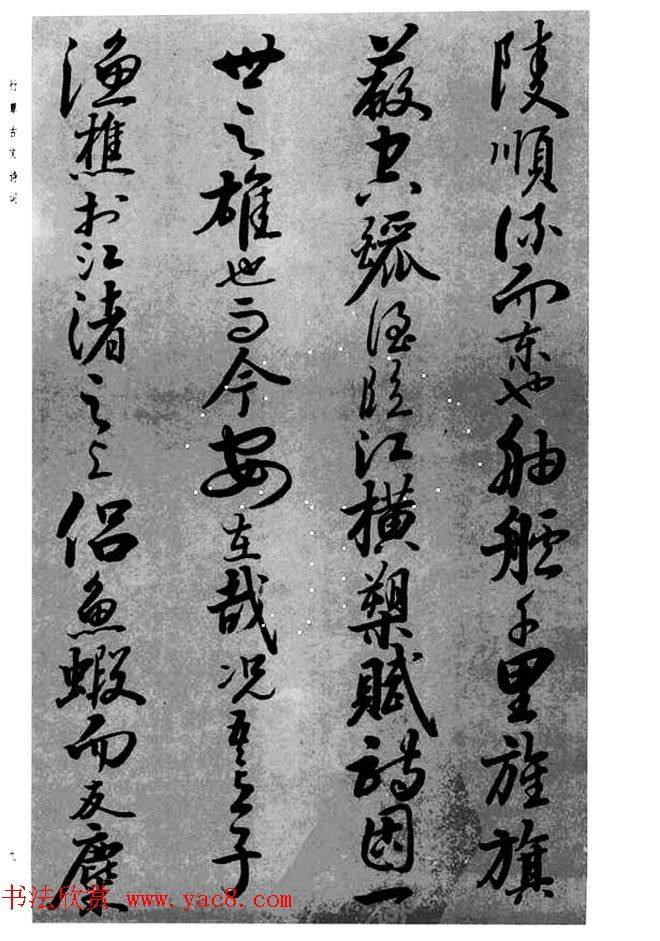 陵順流而東也舳艫千里旌旗
蔽空釃酒臨江横槊賦詩固一
世之雄也而今安在哉况吾與子
漁樵於江渚之上侣魚蝦而友麋
行草古文诗词
九
书法欣赏 www.yac8.com